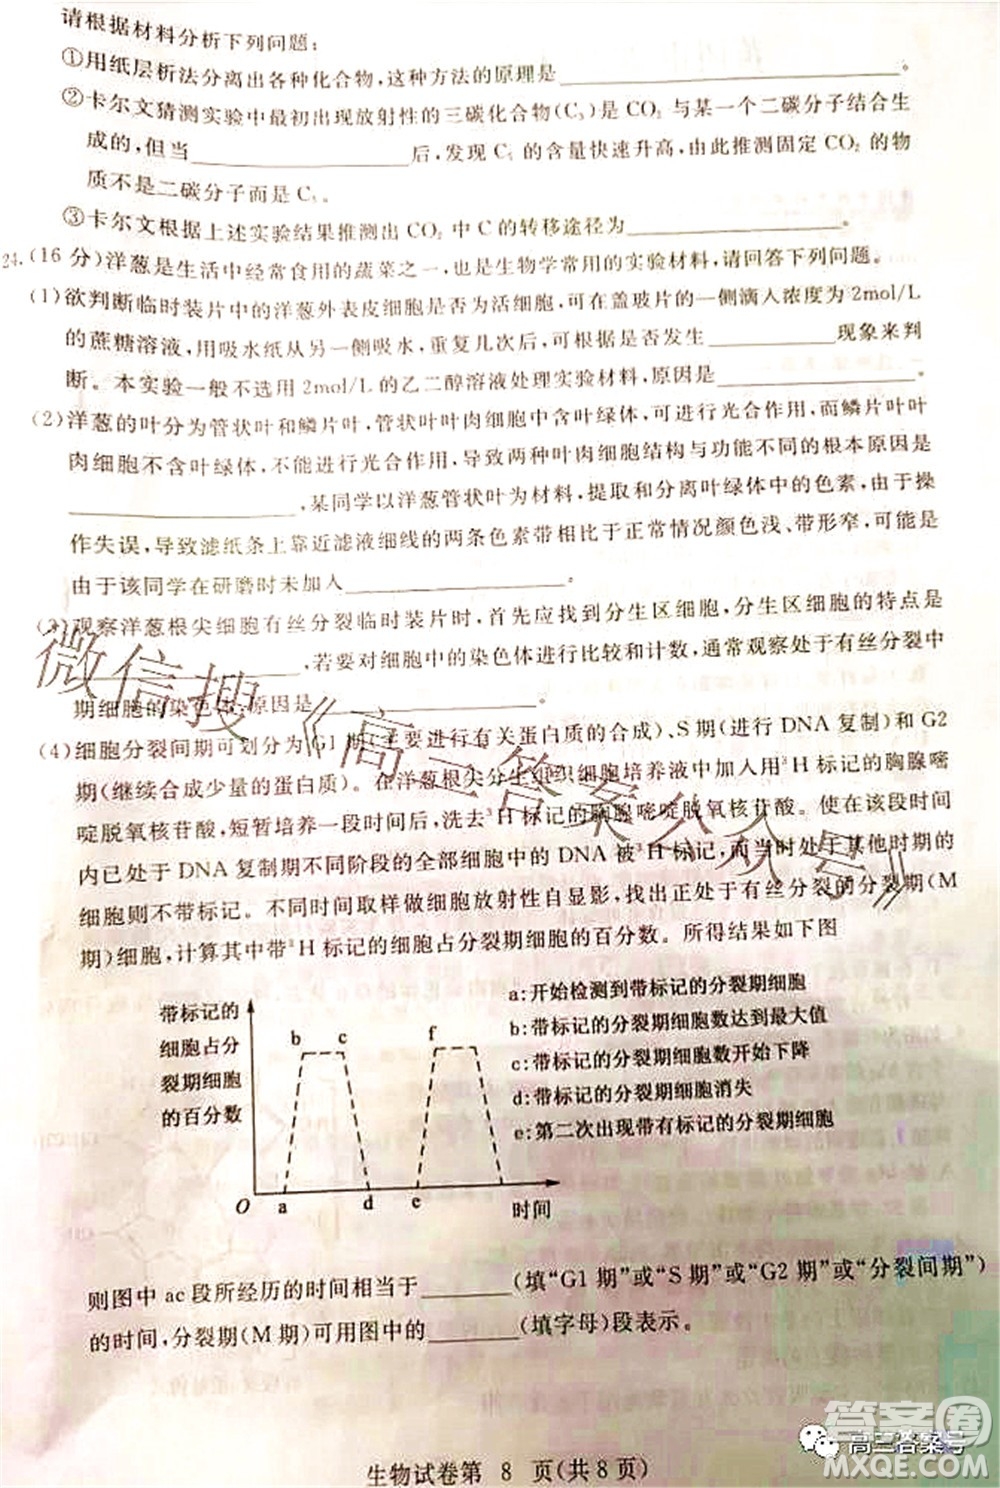 请根据材料分析下列问题：
①用纸层析法分离出各种化合物，这种方法的原理是____________。
②卡尔文猜测实验中最初出现放射性的三碳化合物(C₃)是CO₂与某一个二碳分子结合生
成的，但当____________后，发现C₅的含量快速升高，由此推测固定CO₂的物
质不是二碳分子而是C₅。
③卡尔文根据上述实验结果推测出CO₂中C的转移途径为____________。
24.(16分)洋葱是生活中经常食用的蔬菜之一，也是生物学常用的实验材料，请回答下列问题。
(1)欲判断临时装片中的洋葱外表皮细胞是否为活细胞，可在盖玻片的一侧滴入浓度为2mol/L
的蔗糖溶液，用吸水纸从另一侧吸水，重复几次后，可根据是否发生____________现象来判
断。本实验一般不选用2mol/L的乙二醇溶液处理实验材料，原因是____________。
(2)洋葱的叶分为管状叶和鳞片叶，管状叶叶肉细胞中含叶绿体，可进行光合作用，而鳞片叶叶
肉细胞不含叶绿体，不能进行光合作用，导致两种叶肉细胞结构与功能不同的根本原因是
____________,某同学以洋葱管状叶为材料，提取和分离叶绿体中的色素，由于操
作失误，导致滤纸条上靠近滤液细线的两条色素带相比于正常情况颜色浅、带形窄，可能是
由于该同学在研磨时未加入____________。
(3)观察洋葱根尖细胞有丝分裂临时装片时，首先应找到分生区细胞，分生区细胞的特点是
____________,若要对细胞中的染色体进行比较和计数，通常观察处于有丝分裂中
期细胞的染色体，原因是____________。
(4)细胞分裂间期可划分为G1期(主要进行有关蛋白质的合成)、S期(进行DNA复制)和G2
期(继续合成少量的蛋白质)。在洋葱根尖分生组织细胞培养液中加入用³H标记的胸腺嘧
啶脱氧核苷酸，短暂培养一段时间后，洗去³H标记的胸腺嘧啶脱氧核苷酸。使在该段时间
内已处于DNA复制期不同阶段的全部细胞中的DNA被³H标记，而当时处于其他时期的
细胞则不带标记。不同时间取样做细胞放射性自显影，找出正处于有丝分裂的分裂期(M
期)细胞，计算其中带³H标记的细胞占分裂期细胞的百分数。所得结果如下图
带标记的
细胞占分
裂期细胞
的百分数
b c f
O a d e 时间
a:开始检测到带标记的分裂期细胞
b:带标记的分裂期细胞数达到最大值
c:带标记的分裂期细胞数开始下降
d:带标记的分裂期细胞消失
e:第二次出现带有标记的分裂期细胞
则图中ac段所经历的时间相当于______(填“G1期”或“S期”或“G2期”或“分裂间期”)
的时间，分裂期(M期)可用图中的______(填字母)段表示。
生物试卷第 8 页(共8页)
微信搜《高三答案公众号》
高三答案号
答案圈
MXQE.COM